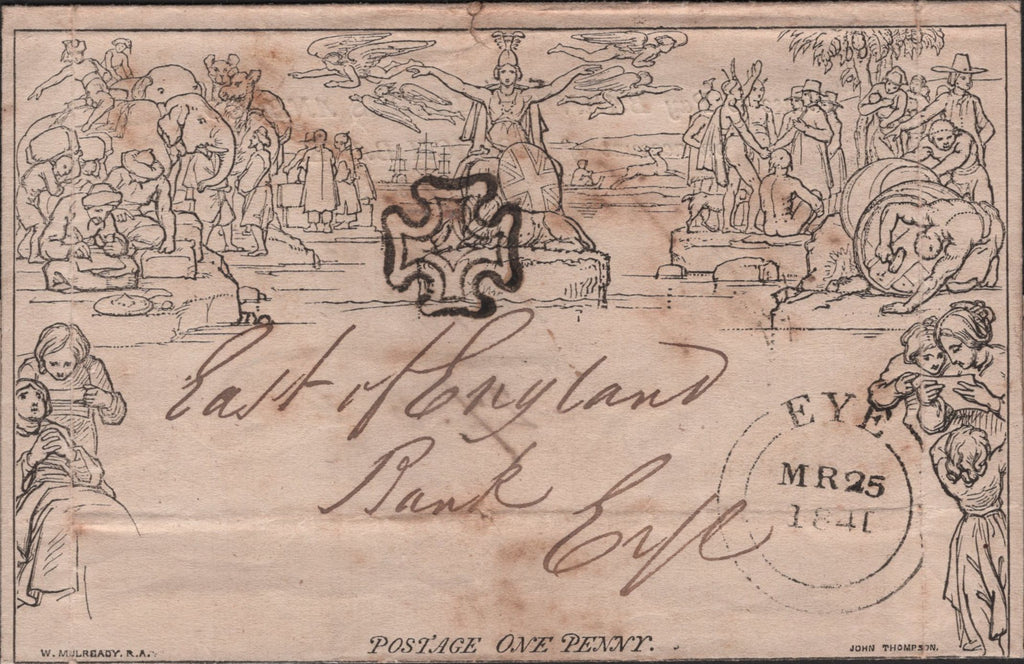 East of England
Bank
Eye
EYE
MR25
1841
POSTAGE ONE PENNY.
W. MULREADY. R.A.
JOHN THOMPSON.